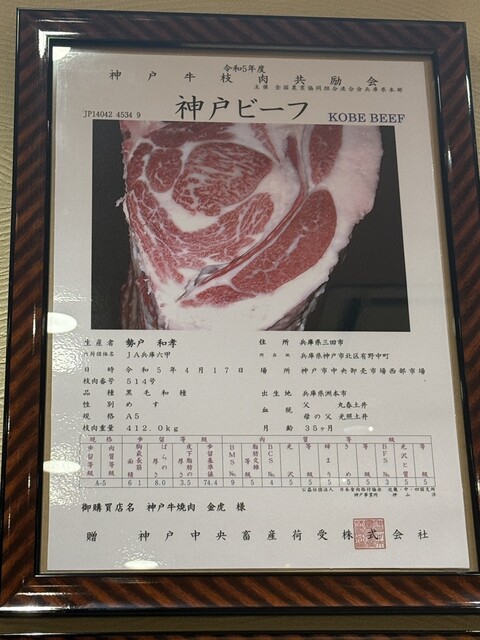 令和5年度
神戸牛枝肉共励会
主催 全国農業協同組合連合会兵庫県本部
JP14042 4534 9
神戸ビーフ
KOBE BEEF
生産者 勢戸 和孝 住所 兵庫県三田市
JA兵庫六甲 兵庫県神戸市北区有野中町
日時 令和5年4月17日 場所 神戸市中央卸売市場西部市場
枝肉番号 514号
品種 黒毛和種 出生地 兵庫県洲本市
性別 めす 血統 父 丸春土井
規格 A5 母の父 光照土井
枝肉重量 412.0kg 月齢 35ヶ月
規格 歩留等級 肉質等級
歩留等級 肉質等級 胸最長筋面積 ばらの厚さ 皮下脂肪の厚さ 歩留基準値 BMS No. 等級 BCS No. 光沢 等級 締まり きめ 等級 BFS No. 光沢と質 等級
A-5 61 8.0 3.5 74.4 9 5 4 5 5 5 5 5 3 5 5
公益社団法人 日本食肉格付協会 近畿・中・四国支所
神戸事業所
御購買店名 神戸牛焼肉 金虎 様
贈 神戸中央畜産荷受株式会社